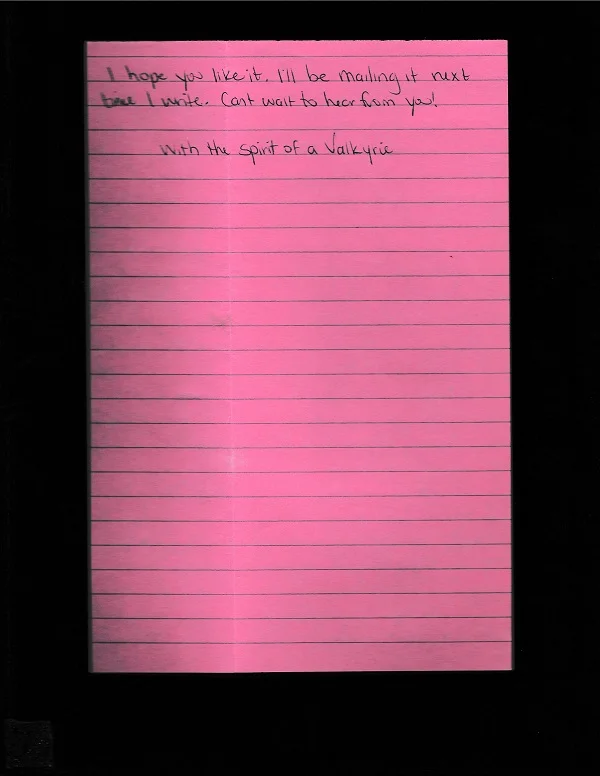 I hope you like it. I'll be mailing it next
time I write. Cant wait to hear from you!
With the spirit of a Valkyrie